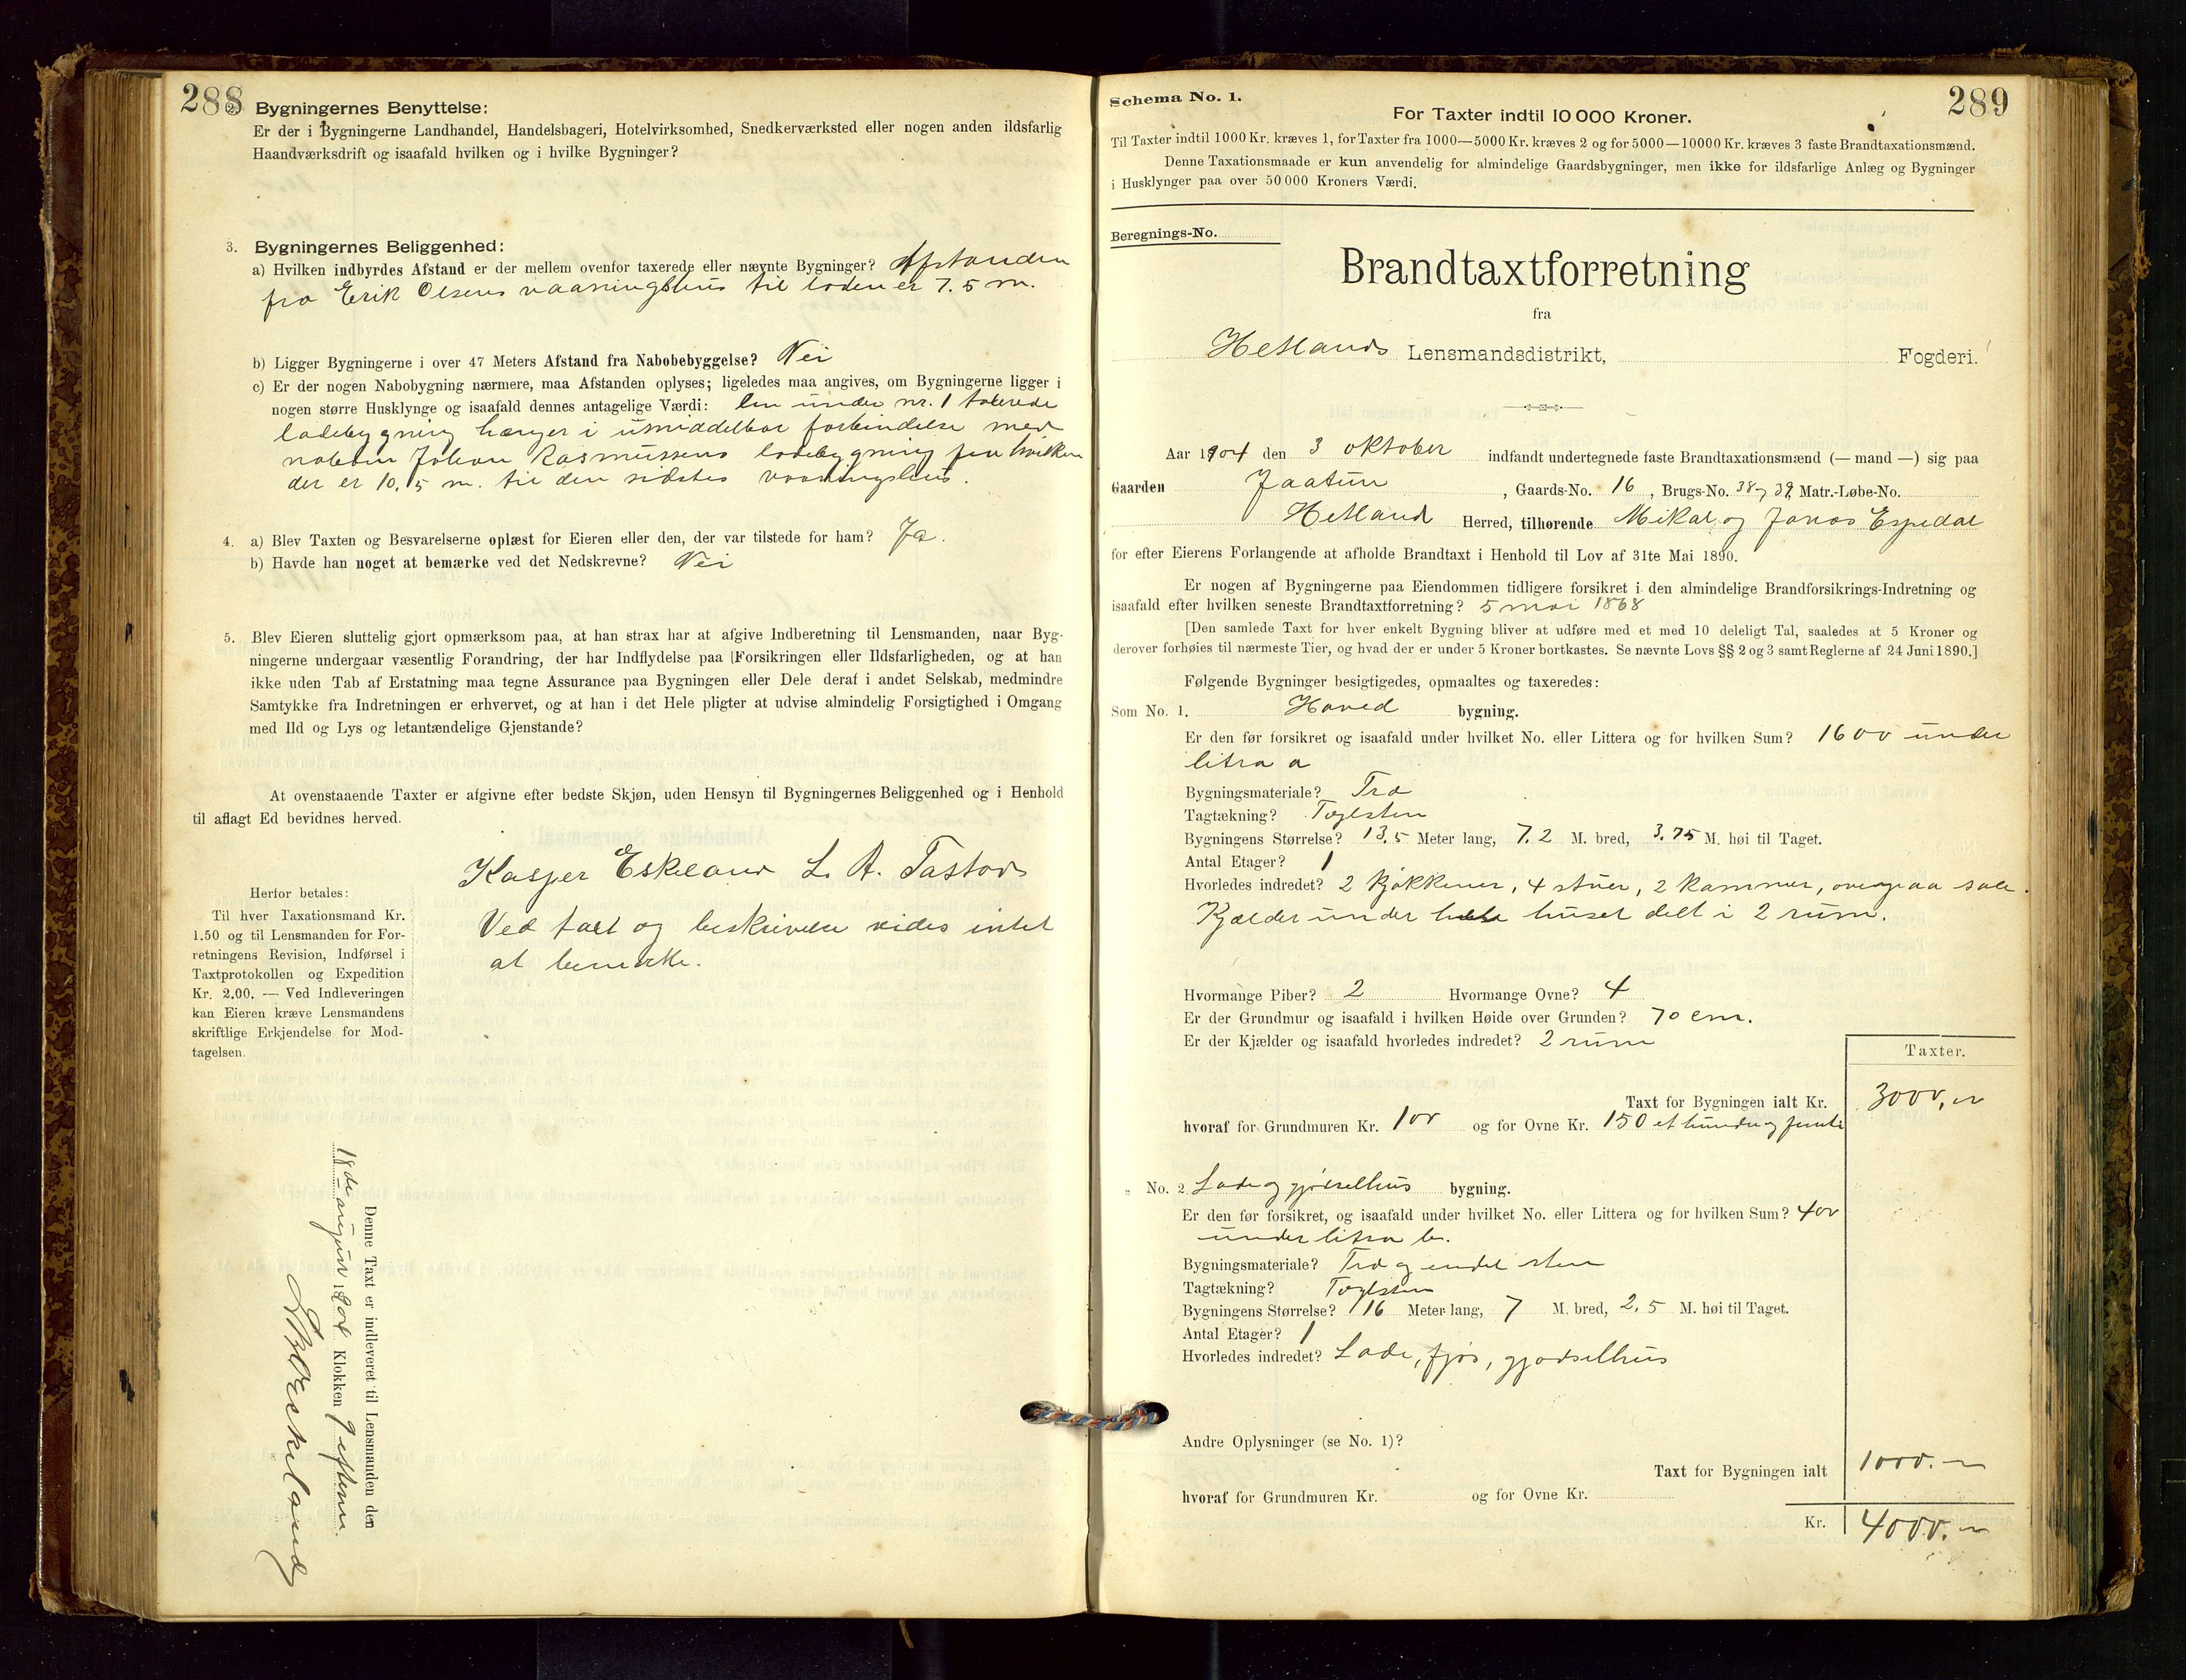 288
2. Bygningernes Benyttelse:
Er der i Bygningerne Landhandel, Handelsbageri, Hotelvirksomhed, Snedkerværksted eller nogen anden ildsfarlig
Haandværksdrift og isaafald hvilken og i hvilke Bygninger?
3. Bygningernes Beliggenhed:
a) Hvilken indbyrdes Afstand er der mellem ovenfor taxerede eller nævnte Bygninger? Afstanden
fra Erik Olsens vaaningshus til loden er 7.5 m.
b) Ligger Bygningerne i over 47 Meters Afstand fra Nabobebyggelse? Nei
c) Er der nogen Nabobygning nærmere, maa Afstanden oplyses; ligeledes maa angives, om Bygningerne ligger i
nogen større Husklynge og isaafald dennes antagelige Værdi: Den under nr. 1 taxerede
ladebygning hænger i umiddelbar forbindelse med
naboen Johan Rasmussens ladebygning fra hvilken
der er 10,5 m. til den sidstes vaaningshus.
4. a) Blev Taxten og Besvarelserne oplæst for Eieren eller den, der var tilstede for ham? Ja.
b) Havde han noget at bemærke ved det Nedskrevne? Nei
5. Blev Eieren sluttelig gjort opmærksom paa, at han strax har at afgive Indberetning til Lensmanden, naar Byg-
ningerne undergaar væsentlig Forandring, der har Indflydelse paa Forsikringen eller Ildsfarligheden, og at han
ikke uden Tab af Erstatning maa tegne Assurance paa Bygningen eller Dele deraf i andet Selskab, medmindre
Samtykke fra Indretningen er erhvervet, og at han i det Hele pligter at udvise almindelig Forsigtighed i Omgang
med Ild og Lys og letantændelige Gjenstande?
At ovenstaaende Taxter er afgivne efter bedste Skjøn, uden Hensyn til Bygningernes Beliggenhed og i Henhold
til aflagt Ed bevidnes herved.
Kasper Eskeland L. A. Tastad
Ved taxt og beskrivelse vides intet
at bemerke.
Herfor betales:
Til hver Taxationsmand Kr.
1.50 og til Lensmanden for For-
retningens Revision, Indførsel i
Taxtprotokollen og Expedition
Kr. 2.00. — Ved Indleveringen
kan Eieren kræve Lensmandens
skriftlige Erkjendelse for Mod-
tagelsen.
Denne Taxt er indleveret til Lensmanden den
18de august 1904 Klokken 9 efterm.
Eskeland
289
Schema No. 1.
For Taxter indtil 10 000 Kroner.
Til Taxter indtil 1000 Kr. kræves 1, for Taxter fra 1000—5000 Kr. kræves 2 og for 5000—10000 Kr. kræves 3 faste Brandtaxationsmænd.
Denne Taxationsmaade er kun anvendelig for almindelige Gaardsbygninger, men ikke for ildsfarlige Anlæg og Bygninger
i Husklynger paa over 50 000 Kroners Værdi.
Beregnings-No.
Brandtaxtforretning
fra
Hetlands Lensmandsdistrikt, Fogderi.
Aar 1904 den 3 oktober indfandt undertegnede faste Brandtaxationsmænd (— mand —) sig paa
Gaarden Jaatun, Gaards-No. 16, Brugs-No. 38 og 39, Matr.-Løbe-No.
Hetland Herred, tilhørende Mikal og Jonas Espedal
for efter Eierens Forlangende at afholde Brandtaxt i Henhold til Lov af 31te Mai 1890.
Er nogen af Bygningerne paa Eiendommen tidligere forsikret i den almindelige Brandforsikrings-Indretning og
isaafald efter hvilken seneste Brandtaxtforretning? 5 mai 1868
[Den samlede Taxt for hver enkelt Bygning bliver at udføre med et med 10 deleligt Tal, saaledes at 5 Kroner og
derover forhøies til nærmeste Tier, og hvad der er under 5 Kroner bortkastes. Se nævnte Lovs §§ 2 og 3 samt Reglerne af 24 Juni 1890.]
Følgende Bygninger besigtigedes, opmaaltes og taxeredes:
Som No. 1. Hoved bygning.
Er den før forsikret og isaafald under hvilket No. eller Littera og for hvilken Sum? 1600 under
litra a
Bygningsmateriale? Træ
Tagtækning? Taglsten
Bygningens Størrelse? 13,5 Meter lang, 7.2 M. bred, 3.75 M. høi til Taget.
Antal Etager? 1
Hvorledes indredet? 2 kjøkkener, 4 stuer, 2 kammer, ovenpaa sale.
Kjælder under hele huset delt i 2 rum.
Hvormange Piber? 2 Hvormange Ovne? 4
Er der Grundmur og isaafald i hvilken Høide over Grunden? 70 cm.
Er der Kjælder og isaafald hvorledes indredet? 2 rum
Taxter.
Taxt for Bygningen ialt Kr. 3000,
hvoraf for Grundmuren Kr. 100 og for Ovne Kr. 150 et hundre og femti
„ No. 2 Lade og gjødselhus bygning.
Er den før forsikret, og isaafald under hvilket No. eller Littera og for hvilken Sum? 400
under litra b.
Bygningsmateriale? Træ og sten
Tagtækning? Taglsten
Bygningens Størrelse? 16 Meter lang, 7 M. bred, 2.5 M. høi til Taget.
Antal Etager? 1
Hvorledes indredet? Lade, fjøs, gjødselhus
Andre Oplysninger (se No. 1)?
Taxt for Bygningen ialt 1000.
hvoraf for Grundmuren Kr. og for Ovne Kr.
Kr. 4000.